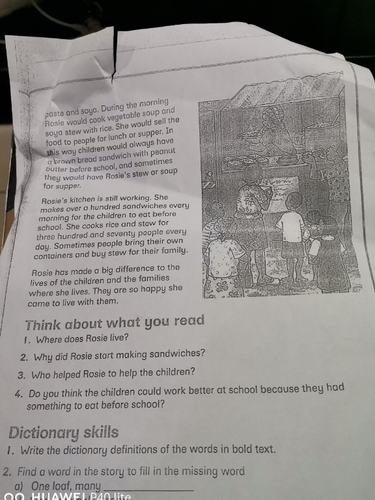 paste and soya. During the morning
Rosie would cook vegetable soup and
soya stew with rice. She would sell the
food to people for lunch or supper. In
this way children would always have
a brown bread sandwich with peanut
butter before school, and sometimes
they would have Rosie's stew or soup
for supper.
Rosie's kitchen is still working. She
makes over a hundred sandwiches every
morning for the children to eat before
school. She cooks rice and stew for
three hundred and seventy people every
day. Sometimes people bring their own
containers and buy stew for their family.
Rosie has made a big difference to the
lives of the children and the families
where she lives. They are so happy she
came to live with them.
Think about what you read
1. Where does Rosie live?
2. Why did Rosie start making sandwiches?
3. Who helped Rosie to help the children?
4. Do you think the children could work better at school because they had
something to eat before school?
Dictionary skills
1. Write the dictionary definitions of the words in bold text.
2. Find a word in the story to fill in the missing word
a) One loaf, many
HUAWEI P40 lite